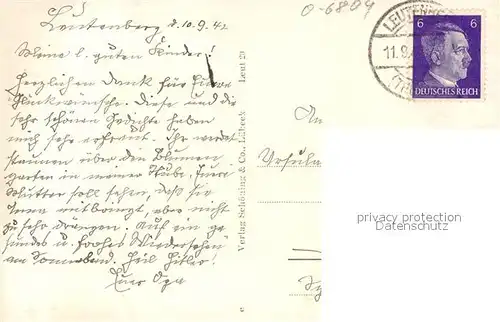 Leutenberg d. 10.9.42
Meine l. guten Kinder!
Herzlichen Dank für Eure
Glückwünsche. Diese und die
sehr schönen Gedichte haben
mich sehr erfreut. Ihr werdet
staunen über den Blumen
garten in meiner Stube. Eure
Mutter soll sehen, daß sie
Irma mitbringt, aber nicht
zu sehr drängen. Auf ein ge
sundes u. frohes Wiedersehen
am Sonnabend. Heil Hitler!
Euer Opa
Verlag Schöning & Co., Lübeck
Leut 20
O-6809
LEUTENBERG
11.9.4
6 6
DEUTSCHES REICH
An
Ursula
privacy protection
Datenschutz